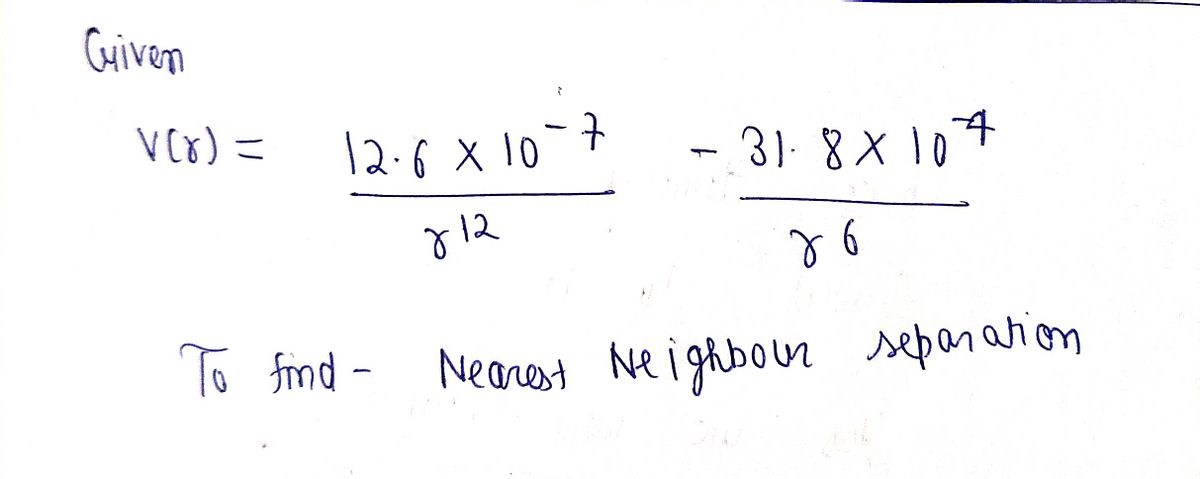 Given
V(r) = 12.6 × 10^-7 / r^12 - 31.8 × 10^-4 / r^6
To find - Nearest Neighbour separation